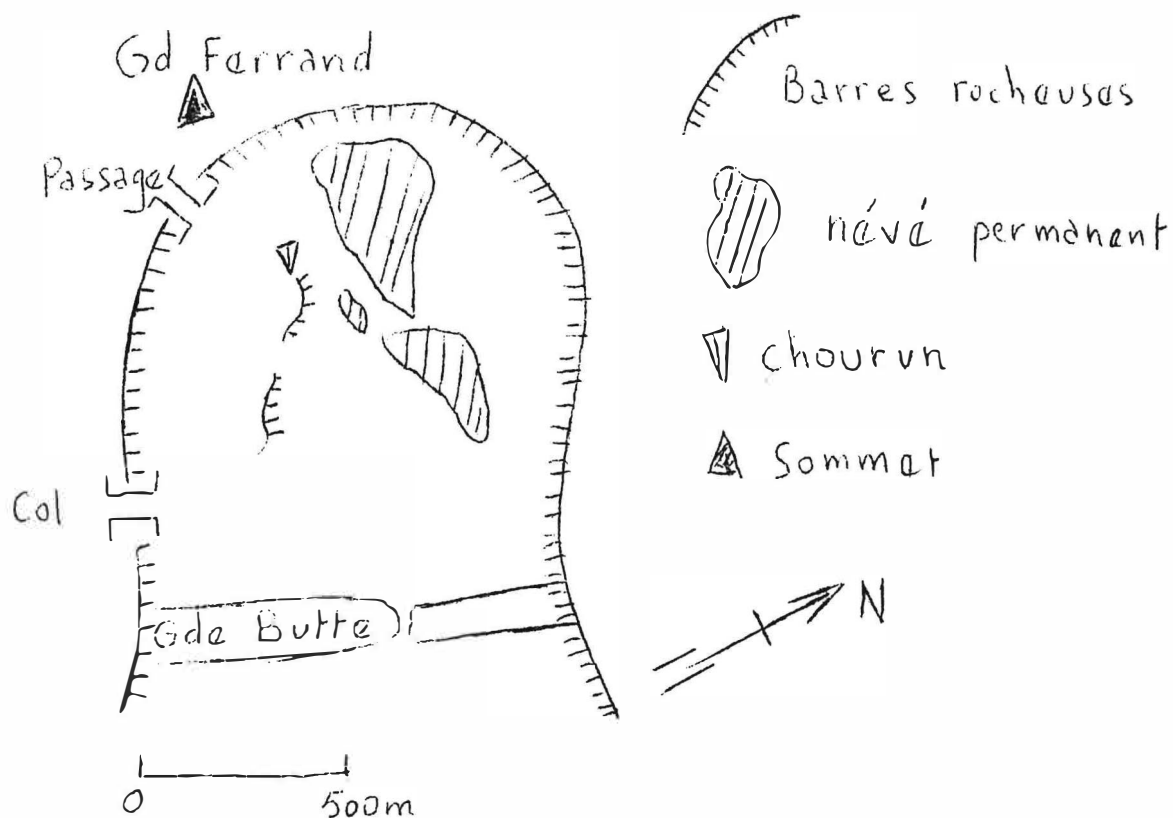 Gd Ferrand
Passage
Col
Gde Butte
0 500m
Barres rocheuses
névé permanent
chourun
Sommet
N